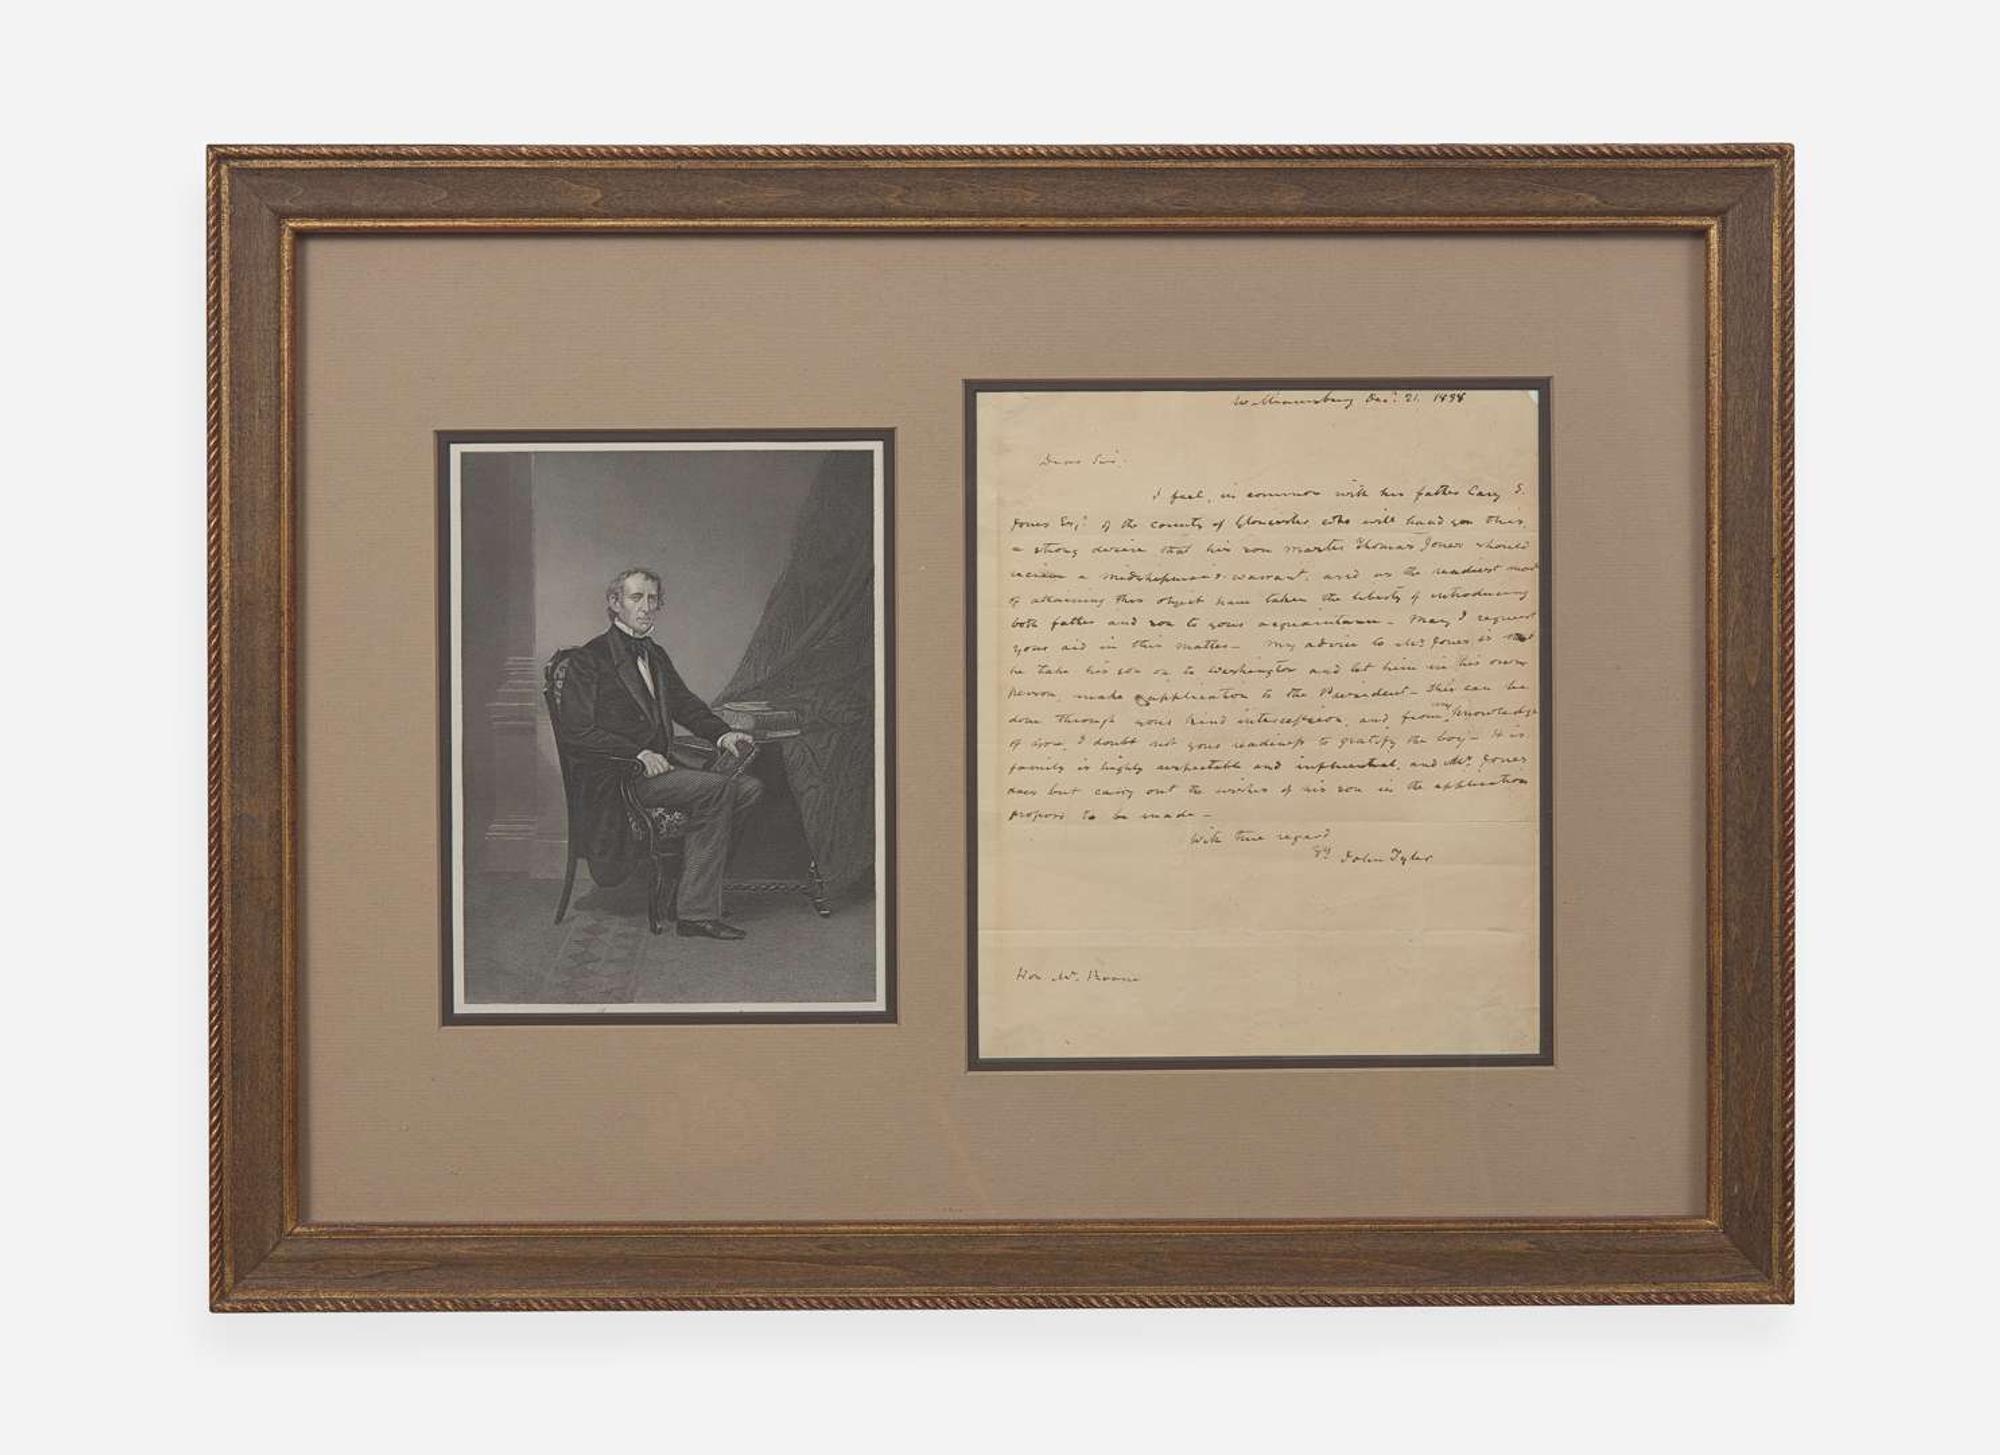 Williamsburg Decr. 21. 1838
Dear Sir.
I feel, in common with his father Cary S.
Jones Esqr. of the county of Gloucester who will hand you this,
a strong desire that his son master Thomas Jones should
receive a midshipman's warrant, and as the readiest mode
of attaining this object have taken the liberty of introducing
both father and son to your acquaintance – May I request
your aid in this matter – My advice to Mr. Jones is that
he take his son on to Washington and let him in his own
person, make application to the President – This can be
done through your kind interception, and from my knowledge
of you, I doubt not your readiness to gratify the boy – His
family is highly respectable and influential, and Mr. Jones
does but carry out the wishes of his son in the application
propos'd to be made –
With true regard
John Tyler
Hon Mr. Roane